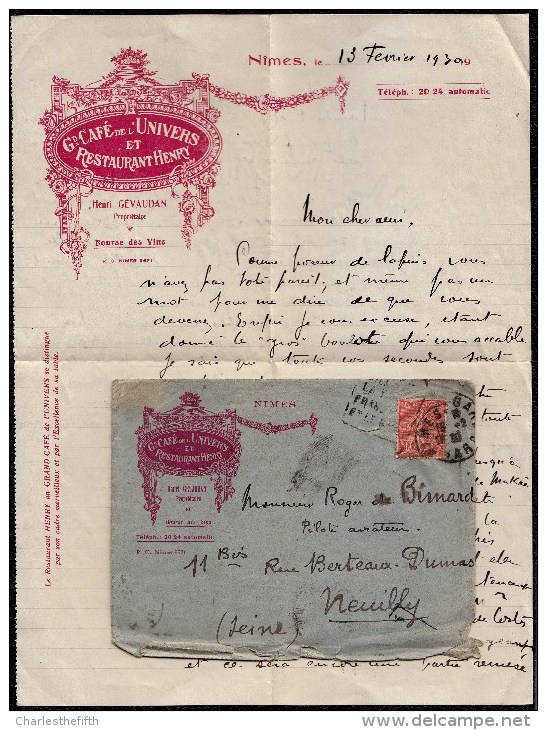 Nîmes, le 13 Fevrier 1930
Téléph: 20-24 automatic
GD. CAFÉ DE L'UNIVERS
ET
RESTAURANT HENRY
Henri GÉVAUDAN
Propriétaire
Bourse des Vins
Mon cher ami,
Comme poseur de lapins vous
n'avez pas votre pareil, et même pas un
mot pour me dire de que vous
devenez. Enfin je vous excuse, étant
donné le "gros" boulot qui vous accable
Je sais que toutes vos secondes sont
Le Restaurant HENRY au GRAND CAFÉ de L'UNIVERS se distingue
par son cadre merveilleux et par l'Excellence de sa table.
NIMES
GD. CAFÉ DE L'UNIVERS
ET
RESTAURANT HENRY
Henri GÉVAUDAN
Propriétaire
Téléph: 20-24 automatic
NIMES-GARE
GARD
Monsieur Roger de Bimard
Pilote aviateur
11 Bis Rue Berteaux-Dumas
Neuilly
(Seine)
la
de Costes
et ce sera encore une partie remise
CharlesthefIfth
delcampe.net